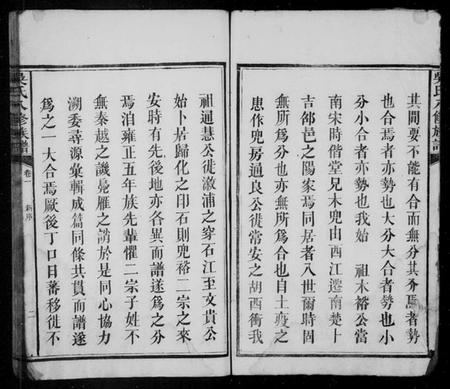 其間要不能有合而無分其分焉者勢
也合焉者亦勢也大分大合者勢也小
分小合者亦勢也我始　祖木裕公當
南宋時偕堂兄木兜由西江遷南楚十
吉郤邑之陽家焉同居者八世爾時固
無所為分也亦無所為合也自土变之
患作兜房通良公徒常安之胡西衝我
吳氏八修族譜
祖通慧公徙漵浦之穿石江至文貴公
始卜居歸化之印石則兜裕二宗之來
安時有先後地亦各異而譜遂為之分
焉洎雍正五年族先輩懼二宗子姓不
無秦越之譏鳧雁之誚於是同心協力
溯委尋源彙輯成篇同條共貫而譜遂
為之一大合焉厥後丁口日蕃移徙不
吳氏八修族譜
卷一
新序
二